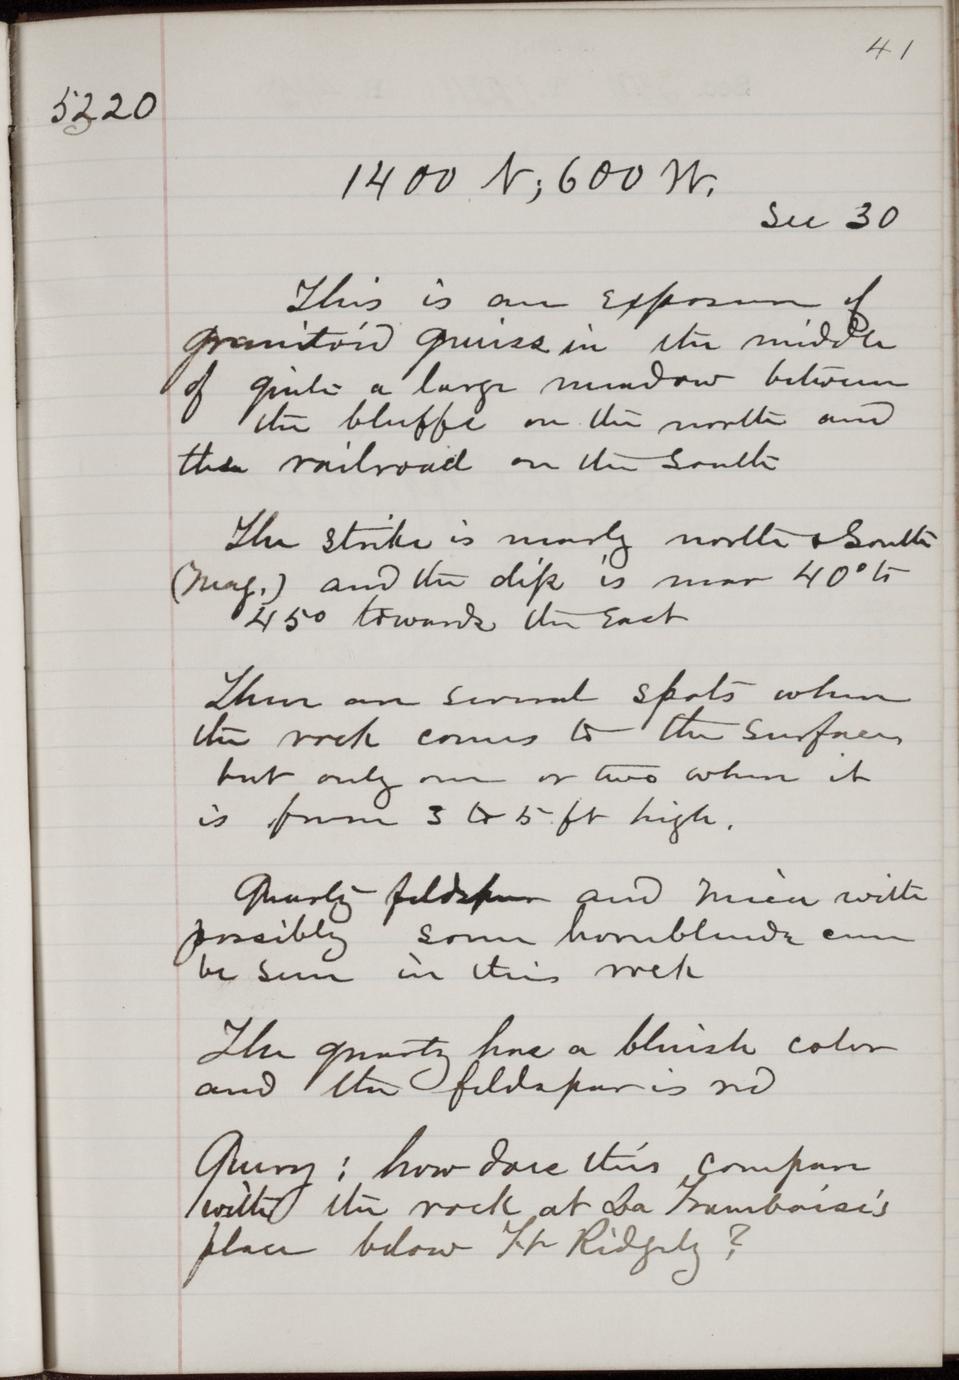 41
5220
1400 N; 600 W.
Sec 30
This is an exposure of
granitoid gneiss in the middle
of quite a large meadow between
the bluffs on the north and
the railroad on the south
The strike is nearly north & South
(Mag.) and the dip is near 40° to
45° towards the East
There are several spots where
the rock comes to the surface
but only one or two where it
is from 3 to 5 ft high.
Quartz feldspar and mica with
possibly some hornblende can
be seen in this rock
The quartz has a bluish color
and the feldspar is red
Query; how does this compare
with the rock at La Framboise's
place below Ft Ridgely?